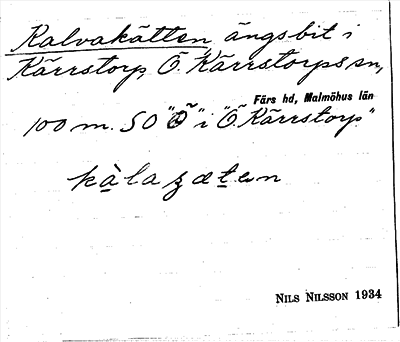 Kalvakätten ängsbit i
Kärrstorp, Ö. Kärrstorps sn,
Färs hd, Malmöhus län
100 m. SO "Ö" i "Ö. Kärrstorp."
NILS NILSSON 1934